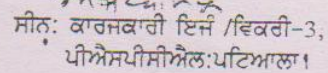 ਸੀਨ: ਕਾਰਜਕਾਰੀ ਇਜੰ /ਵਿਕਰੀ-3,
ਪੀਐਸਪੀਸੀਐਲ:ਪਟਿਆਲਾ।